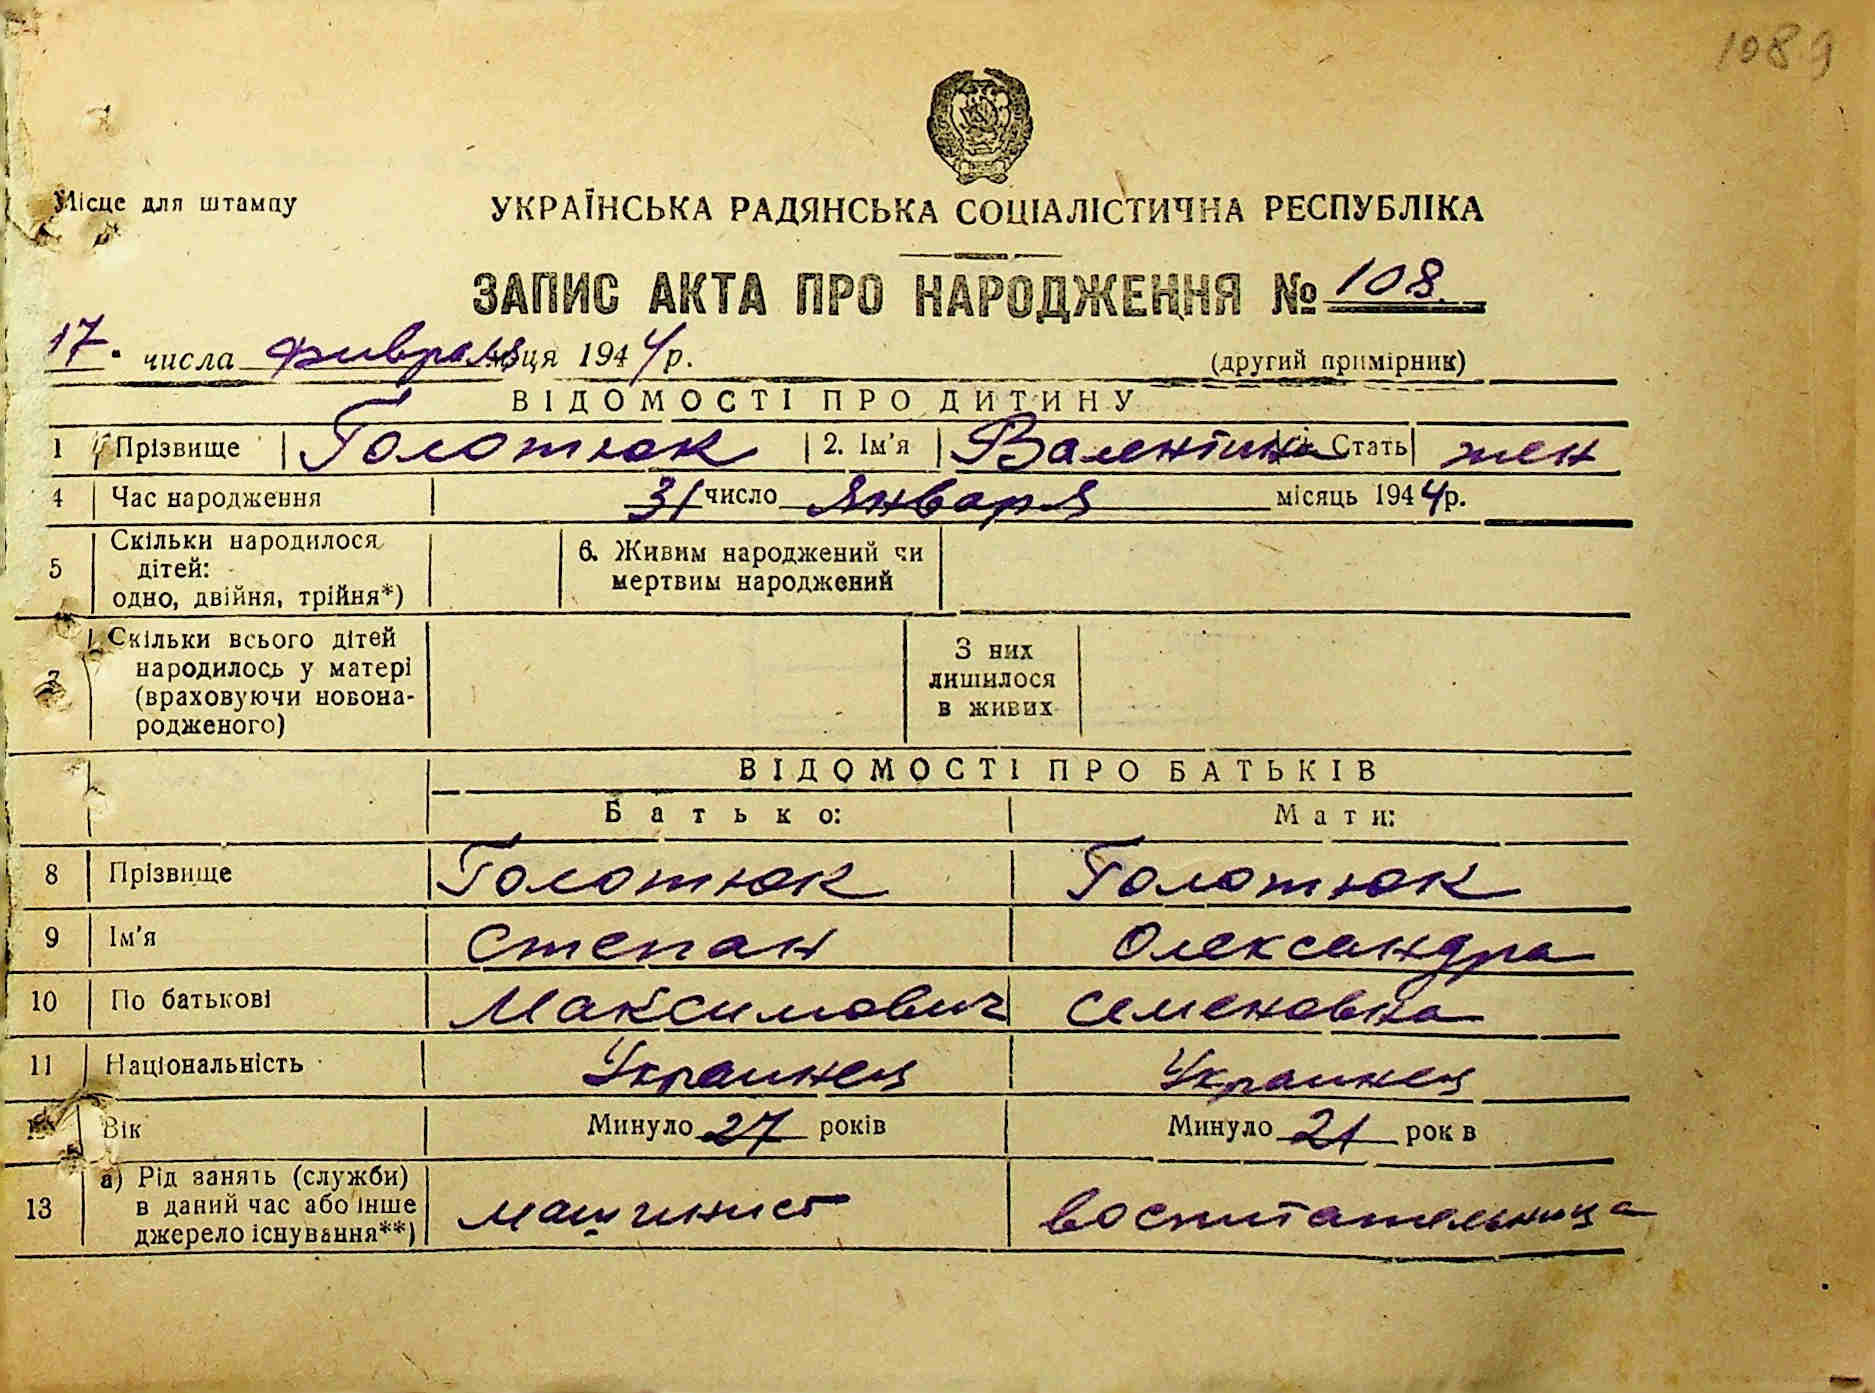 1089
Місце для штампу
УКРАЇНСЬКА РАДЯНСЬКА СОЦІАЛІСТИЧНА РЕСПУБЛІКА
ЗАПИС АКТА ПРО НАРОДЖЕННЯ № 108.
17. числа февраля м-ця 1944 р.
(другий примірник)
ВІДОМОСТІ ПРО ДИТИНУ
1 Прізвище Голотюк 2. Ім'я Валентина Стать жен
4 Час народження 31 число Января місяць 1944 р.
5 Скільки народилося дітей: одно, двійня, трійня*) 6. Живим народжений чи мертвим народжений
7 Скільки всього дітей народилось у матері (враховуючи новона-родженого) З них лишилося в живих
ВІДОМОСТІ ПРО БАТЬКІВ
Батько: Мати:
8 Прізвище Голотюк Голотюк
9 Ім'я Степан Олександра
10 По батькові Максимович Семеновна
11 Національність Украинец Украинец
12 Вік Минуло 27 років Минуло 21 рок в
13 а) Рід занять (служби) в даний час або інше джерело існування**) машинист воспитательница